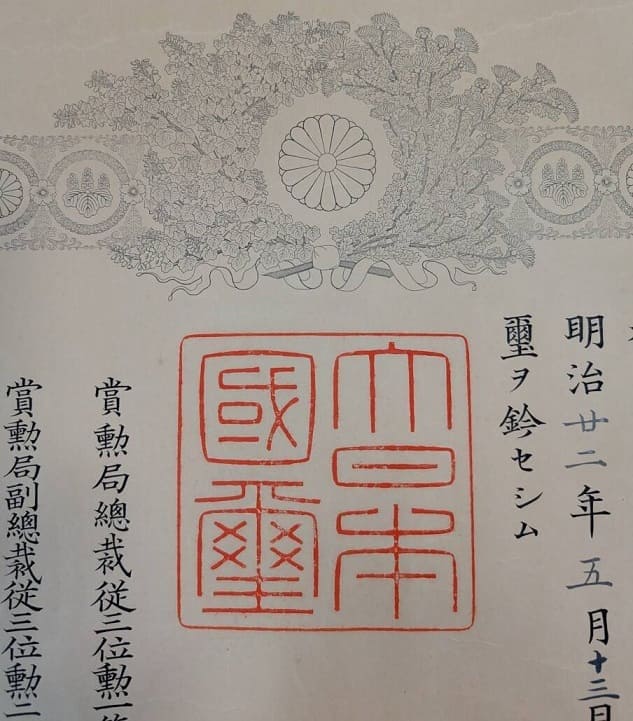 璽ヲ鈐セシム
明治廿二年五月十三日
大日本
國璽
賞勲局總裁従三位勲一等
賞勲局副總裁従三位勲二